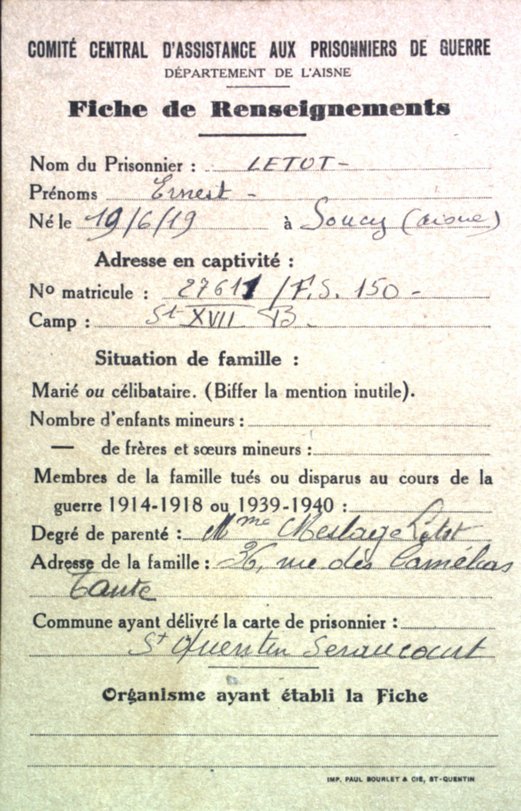 COMITÉ CENTRAL D'ASSISTANCE AUX PRISONNIERS DE GUERRE
DÉPARTEMENT DE L'AISNE
Fiche de Renseignements
Nom du Prisonnier : LETOT -
Prénoms Ernest -
Né le 19/6/19 à Soucy (aisne)
Adresse en captivité :
No matricule : 27611 / F.S. 150 -
Camp : St XVII B.
Situation de famille :
Marié ou célibataire. (Biffer la mention inutile).
Nombre d'enfants mineurs :
— de frères et sœurs mineurs :
Membres de la famille tués ou disparus au cours de la
guerre 1914-1918 ou 1939-1940 :
Degré de parenté : Mme Letot
Adresse de la famille : 36, rue des Camélias
Tante
Commune ayant délivré la carte de prisonnier :
St Quentin Seraucourt
Organisme ayant établi la Fiche
IMP. PAUL BOURLET & CIE, ST-QUENTIN